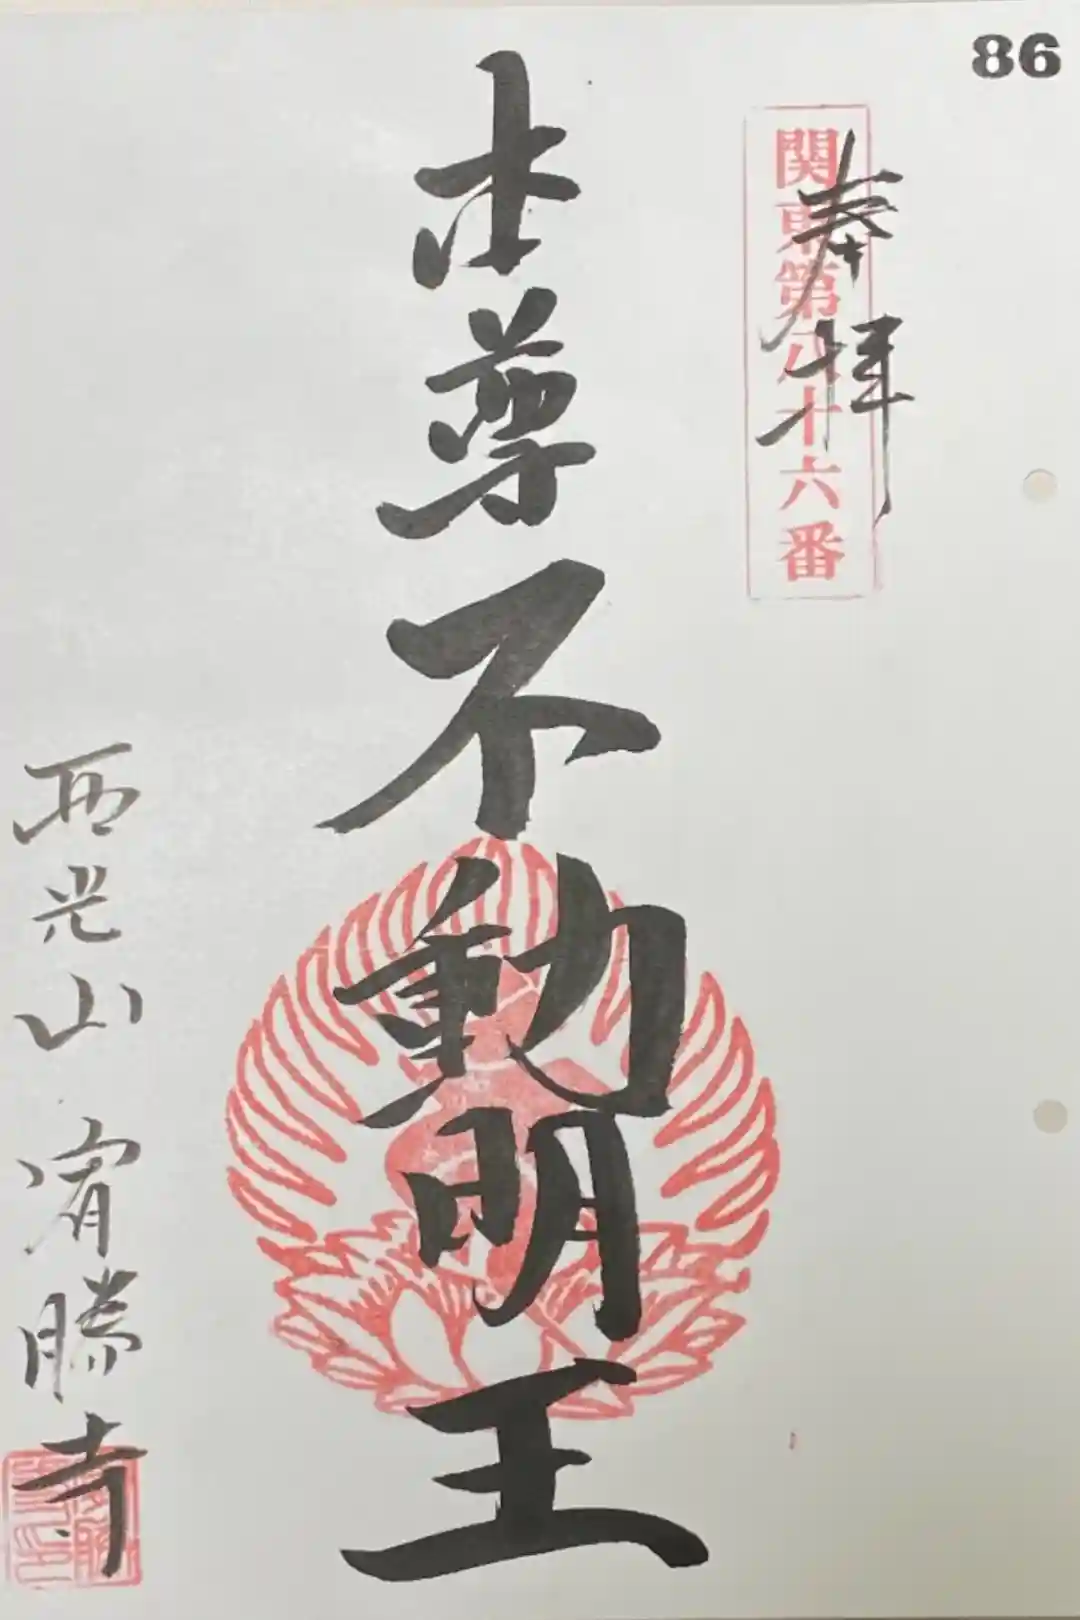 86
奉拝
関東第八十六番
本尊不動明王
西光山 宥勝寺